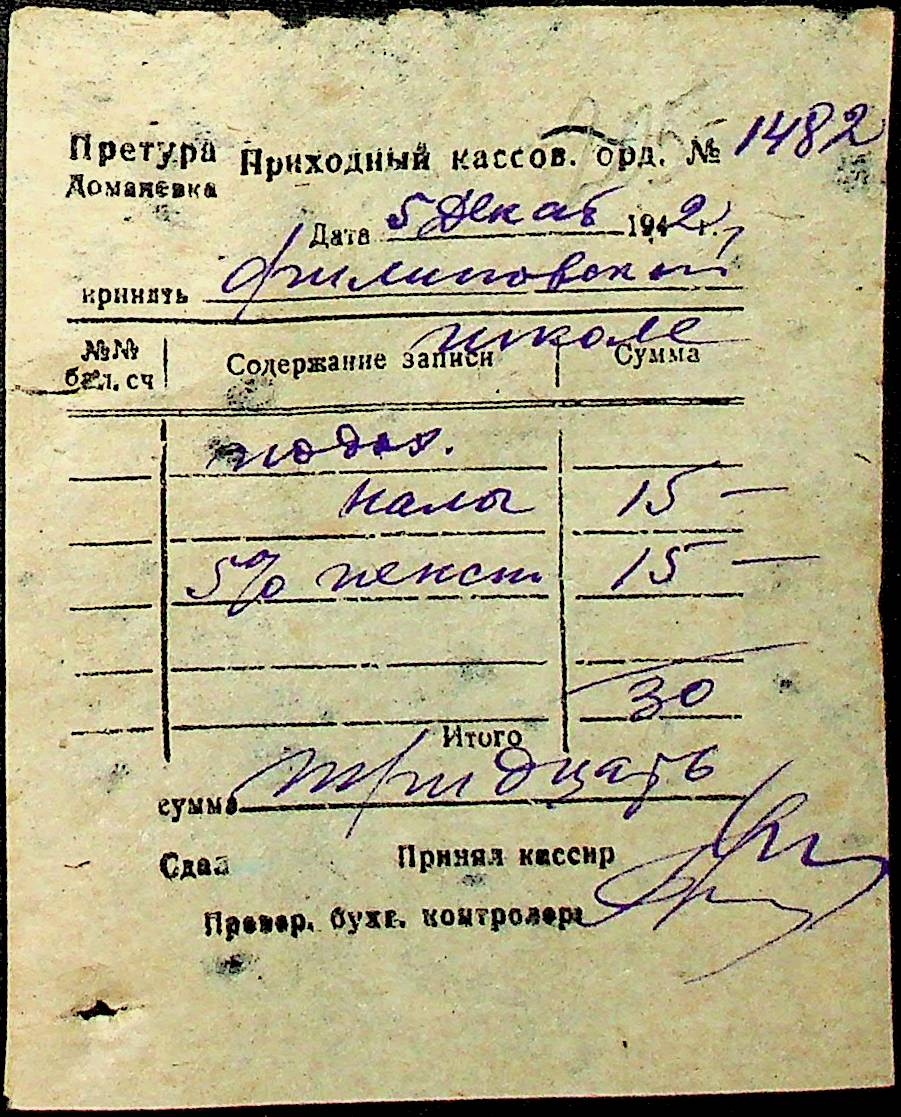 Претура Приходный кассов. орд. № 1482
Доманевка
Дата 5 Декаб 1942 г.
принять Филиповской
школе
№№ бал. сч Содержание записи Сумма
подох.
налог 15 —
5% пенст 15 —
30
Итого
сумма тридцать
Сдал Принял кассир
Провер. бухг. контролер